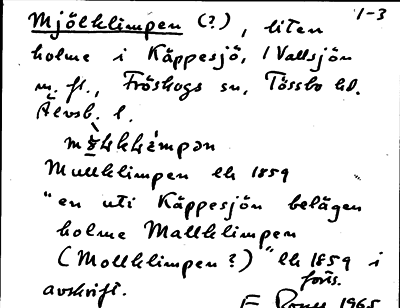 1-3
Mjölklimpen (?), liten
holme i Käppesjö, / Vallsjön
m. fl., Fröskogs sn, Tössbo hd.
Älvsb. l.
Mullklimpen lk 1859
"en uti Käppesjön belägen
holme Mallklimpen
(Mollklimpen?)" lk 1859 i
förs.
avskrift.
1965